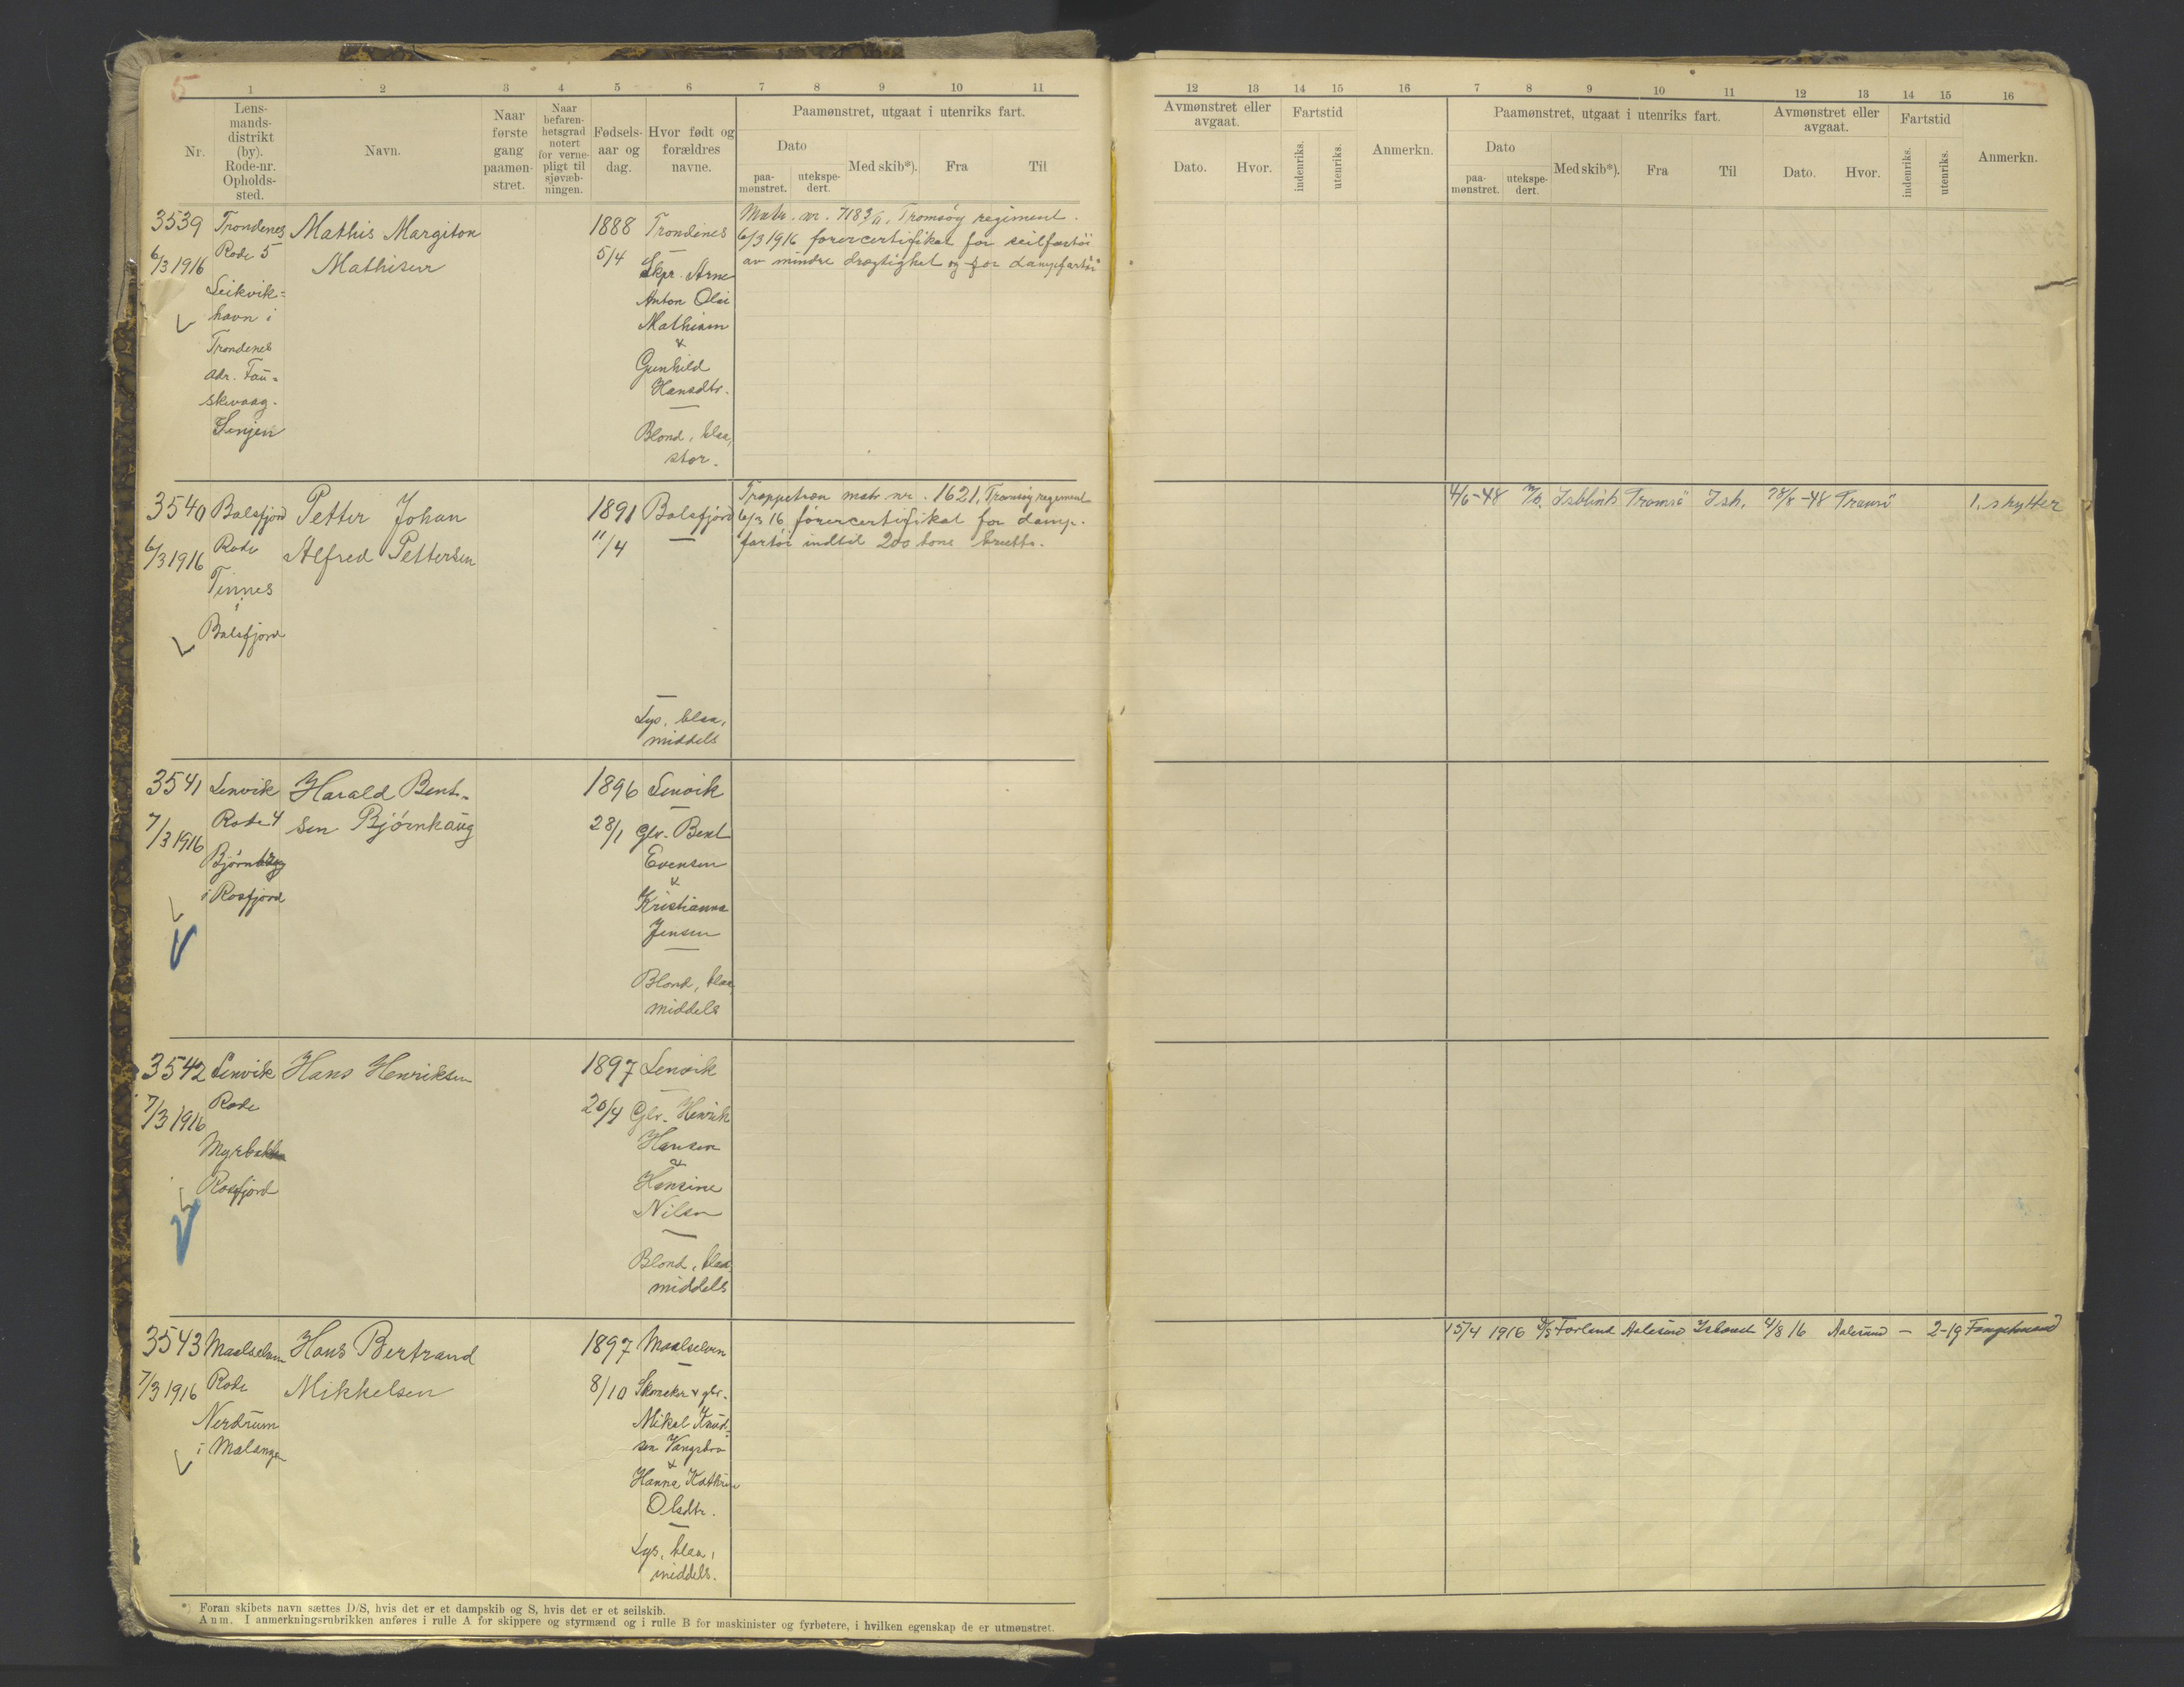 5
1 2 3 4 5 6 7 8 9 10 11
Nr.
Lens-
mands-
distrikt
(by).
Rode-nr.
Opholds-
sted.
Navn.
Naar
første
gang
paamøn-
stret.
Naar
befaren-
hetsgrad
notert
for verne-
pligt til
sjøvæb-
ningen.
Fødsels-
aar og
dag.
Hvor født og
forældres
navne.
Paamønstret, utgaat i utenriks fart.
Dato
paa-
mønstret.
utekspe-
dert.
Med skib*).
Fra
Til
3539
6/3 1916
Trondenes
Rode 5
havn i
Trondenes
adr. Fau-
skevaag.
Senjen
Mathis Margiton
Mathisen
1888
5/4
Trondenes
Skpr. Arne
Anton Olai
Mathisen
&
Gunhild
Hansdtr.
Blond, blaa,
stor.
Matr. nr. 7183/11, Tromsøy regiment.
6/3 1916 førercertifikat for seilfartøi
av mindre drægtighet og for dampfartøi
3540
6/3 1916
Balsfjord
Rode
Tennes
i
Balsfjord
Petter Johan
Alfred Pettersen
1891
11/4
Balsfjord
Lys, blaa,
middels
matr nr. 1621, Tromsøy regiment
6/3 16 førercertifikat for damp-
fartøi indtil 200 tons brutto.
3541
7/3 1916
Lenvik
Rode 4
Bjørnhaug
i Rosfjord
Harald Bent-
sen Bjørnhaug
1896
28/1
Lenvik
Gbr. Bent
Evensen
&
Kristianna
Jensen
Blond, blaa,
middels
3542
7/3 1916
Lenvik
Rode
Myrbakken
Rosfjord
Hans Henriksen
1897
20/4
Lenvik
Gbr. Henrik
Hansen
&
Hansine
Nilsen
Blond, blaa,
middels
3543
7/3 1916
Maalselven
Rode
Nerdrum
i Malangen
Hans Bertrand
Mikkelsen
1897
8/10
Maalselven
Skomaker & gbr.
Mikal Knud-
sen
&
Hanna Kathrine
Olsdtr.
Lys, blaa,
middels.
*) Foran skibets navn sættes D/S, hvis det er et dampskib og S, hvis det er et seilskib.
Anm. I anmerkningsrubrikken anføres i rulle A for skippere og styrmænd og i rulle B for maskinister og fyrbøtere, i hvilken egenskap de er utmønstret.
12 13 14 15 16 7 8 9 10 11 12 13 14 15 16
Avmønstret eller
avgaat.
Dato. Hvor.
Fartstid
indenriks.
utenriks.
Anmerkn.
Paamønstret, utgaat i utenriks fart.
Dato
paa-
mønstret.
utekspe-
dert.
Med skib*).
Fra
Til
Avmønstret eller
avgaat.
Dato. Hvor.
Fartstid
indenriks.
utenriks.
Anmerkn.
4/6-48 Isblink Tromsö Ish. 28/8-48 Tromsö 1. skytter
15/4 1916 Forland Aalesund Ishavet 4/8 16 Aalesund — 2-19 Fangstmand